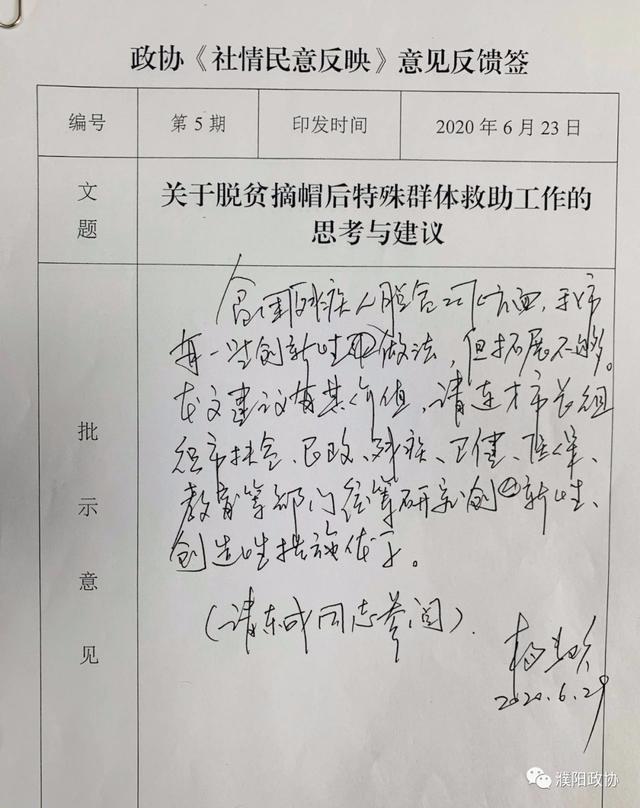 政协《社情民意反映》意见反馈签
编号 第5期 印发时间 2020年6月23日
文题 关于脱贫摘帽后特殊群体救助工作的
思考与建议
批示意见
残疾人脱贫方面，我市
有一些创新性做法，但拓展不够。
本文建议有其价值，请连才市长组
织市扶贫、民政、残疾、卫健、医保、
教育等部门统筹研究创新性、
创造性措施办法。
（请东成同志参阅）
2020.6.29
濮阳政协